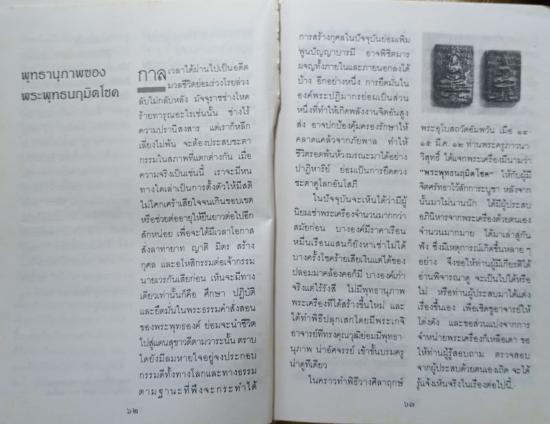 พุทธานุภาพของ
พระพุทธนฤมิตโชค
กาลเวลาได้ผ่านไปเป็นอดีต
มวลชีวิตย่อมร่วงโรยล่วง
ลับไม่กลับหลัง มัจจุราชช่างโหด
ร้ายทารุณอะไรเช่นนั้น ช่างไร้
ความปรานีสงสาร แต่เราก็หลีก
เลี่ยงไม่พ้น จะต้องประสบชะตา
กรรมในสภาพที่แตกต่างกัน เมื่อ
ความจริงเป็นเช่นนี้ เราจะมีหน
ทางใดเล่าเป็นการตั้งตัวให้มีสติ
ไม่โศกเศร้าเสียใจจนเกินขอบเขต
หรือช่วยต่ออายุให้ยืนยาวต่อไปอีก
สักหน่อย เพื่อจะได้มีเวลาโอกาส
สั่งลาทายาท ญาติ มิตร สร้าง
กุศล และอโหสิกรรมต่อเจ้ากรรม
นายเวรกันเสียก่อน เห็นจะมีทาง
เดียวเท่านั้นก็คือ ศึกษา ปฏิบัติ
และยึดมั่นในพระธรรมคำสั่งสอน
ของพระพุทธองค์ ย่อมจะนำชีวิต
ไปสู่แดนสุขาวดีตามวาระนั้น ตราบ
โดยังมีลมหายใจอยู่จงประกอบ
กรรมดีทั้งทางโลกและทางธรรม
ตามฐานะที่พึงจะกระทำได้
๖๒
การสร้างกุศลในปัจจุบันย่อมเพิ่ม
พูนปัญญาบารมี อาจพิชิตมาร
ผจญทั้งภายในและภายนอกลงได้
บ้าง อีกอย่างหนึ่ง การยึดมั่นใน
องค์พระปฏิมากรย่อมเป็นส่วน
หนึ่งที่ทำให้เกิดพลังงานจิตอันสูง
ส่ง อาจปกป้องคุ้มครองรักษาให้
คลาดแคล้วจากภัยพาล ทำให้
ชีวิตรอดพ้นห้วงมรณะมาได้อย่าง
ปาฏิหาริย์ ย่อมเป็นการยืดดวง
ชะตาดูโลกอันโสภี
ในปัจจุบันจะเห็นได้ว่ามีผู้
นิยมเช่าพระเครื่องจำนวนมากกว่า
สมัยก่อน บางองค์มีราคาเรือน
หมื่นเรือนแสนก็ยังหาเช่าไม่ได้
บางครั้งโชคร้ายเสียเงินแต่ได้ของ
ปลอมมาคล้องคอก็มี บางองค์เก่า
จริงแต่ไร้รังสี ไม่มีพุทธานุภาพ
พระเครื่องที่ได้สร้างขึ้นใหม่ และ
ได้ทำพิธีปลุกเสกโดยมีพระเกจิ
อาจารย์ที่ทรงคุณวุฒิย่อมมีพุทธา-
นุภาพ น่าอัศจรรย์ เข้าขั้นบรมครู
น่าดูทีเดียว
ในคราวทำพิธีวางศิลาฤกษ์
พระอุโบสถวัดอัมพวัน เมื่อ ๑๔
๑๕ มี.ค. ๑๒ ท่านพระครูภาวนา
วิสุทธิ์ ได้แจกพระเครื่องมีนามว่า
"พระพุทธนฤมิตโชค" ให้กับผู้มี
จิตศรัทธาไว้สักการะบูชา หลังจาก
นั้นมาไม่นานนัก ได้มีผู้ประสบ
อภินิหารจากพระเครื่องด้วยตนเอง
จำนวนมากมาย ได้มาเล่าสู่กัน
ฟัง ซึ่งมีเหตุการณ์เกิดขึ้นหลาย ๆ
อย่าง จึงขอให้ท่านผู้มีเกียรติได้
อ่านพิจารณาดู จะเป็นไปได้หรือ
ไม่ หรือท่านผู้ประสบมาได้แต่ง
เรื่องขึ้นเอง เพื่อเชิดชูอาจารย์ให้
โด่งดัง และขอส่วนแบ่งจากการ
จำหน่ายพระเครื่องก็เหลือเดา ขอ
ให้ท่านผู้รู้สอบถาม ตรวจสอบ
จากผู้ประสบด้วยตนเองเถิด จะได้
รู้แจ้งเห็นจริงในเรื่องต่อไปนี้.
๖๓